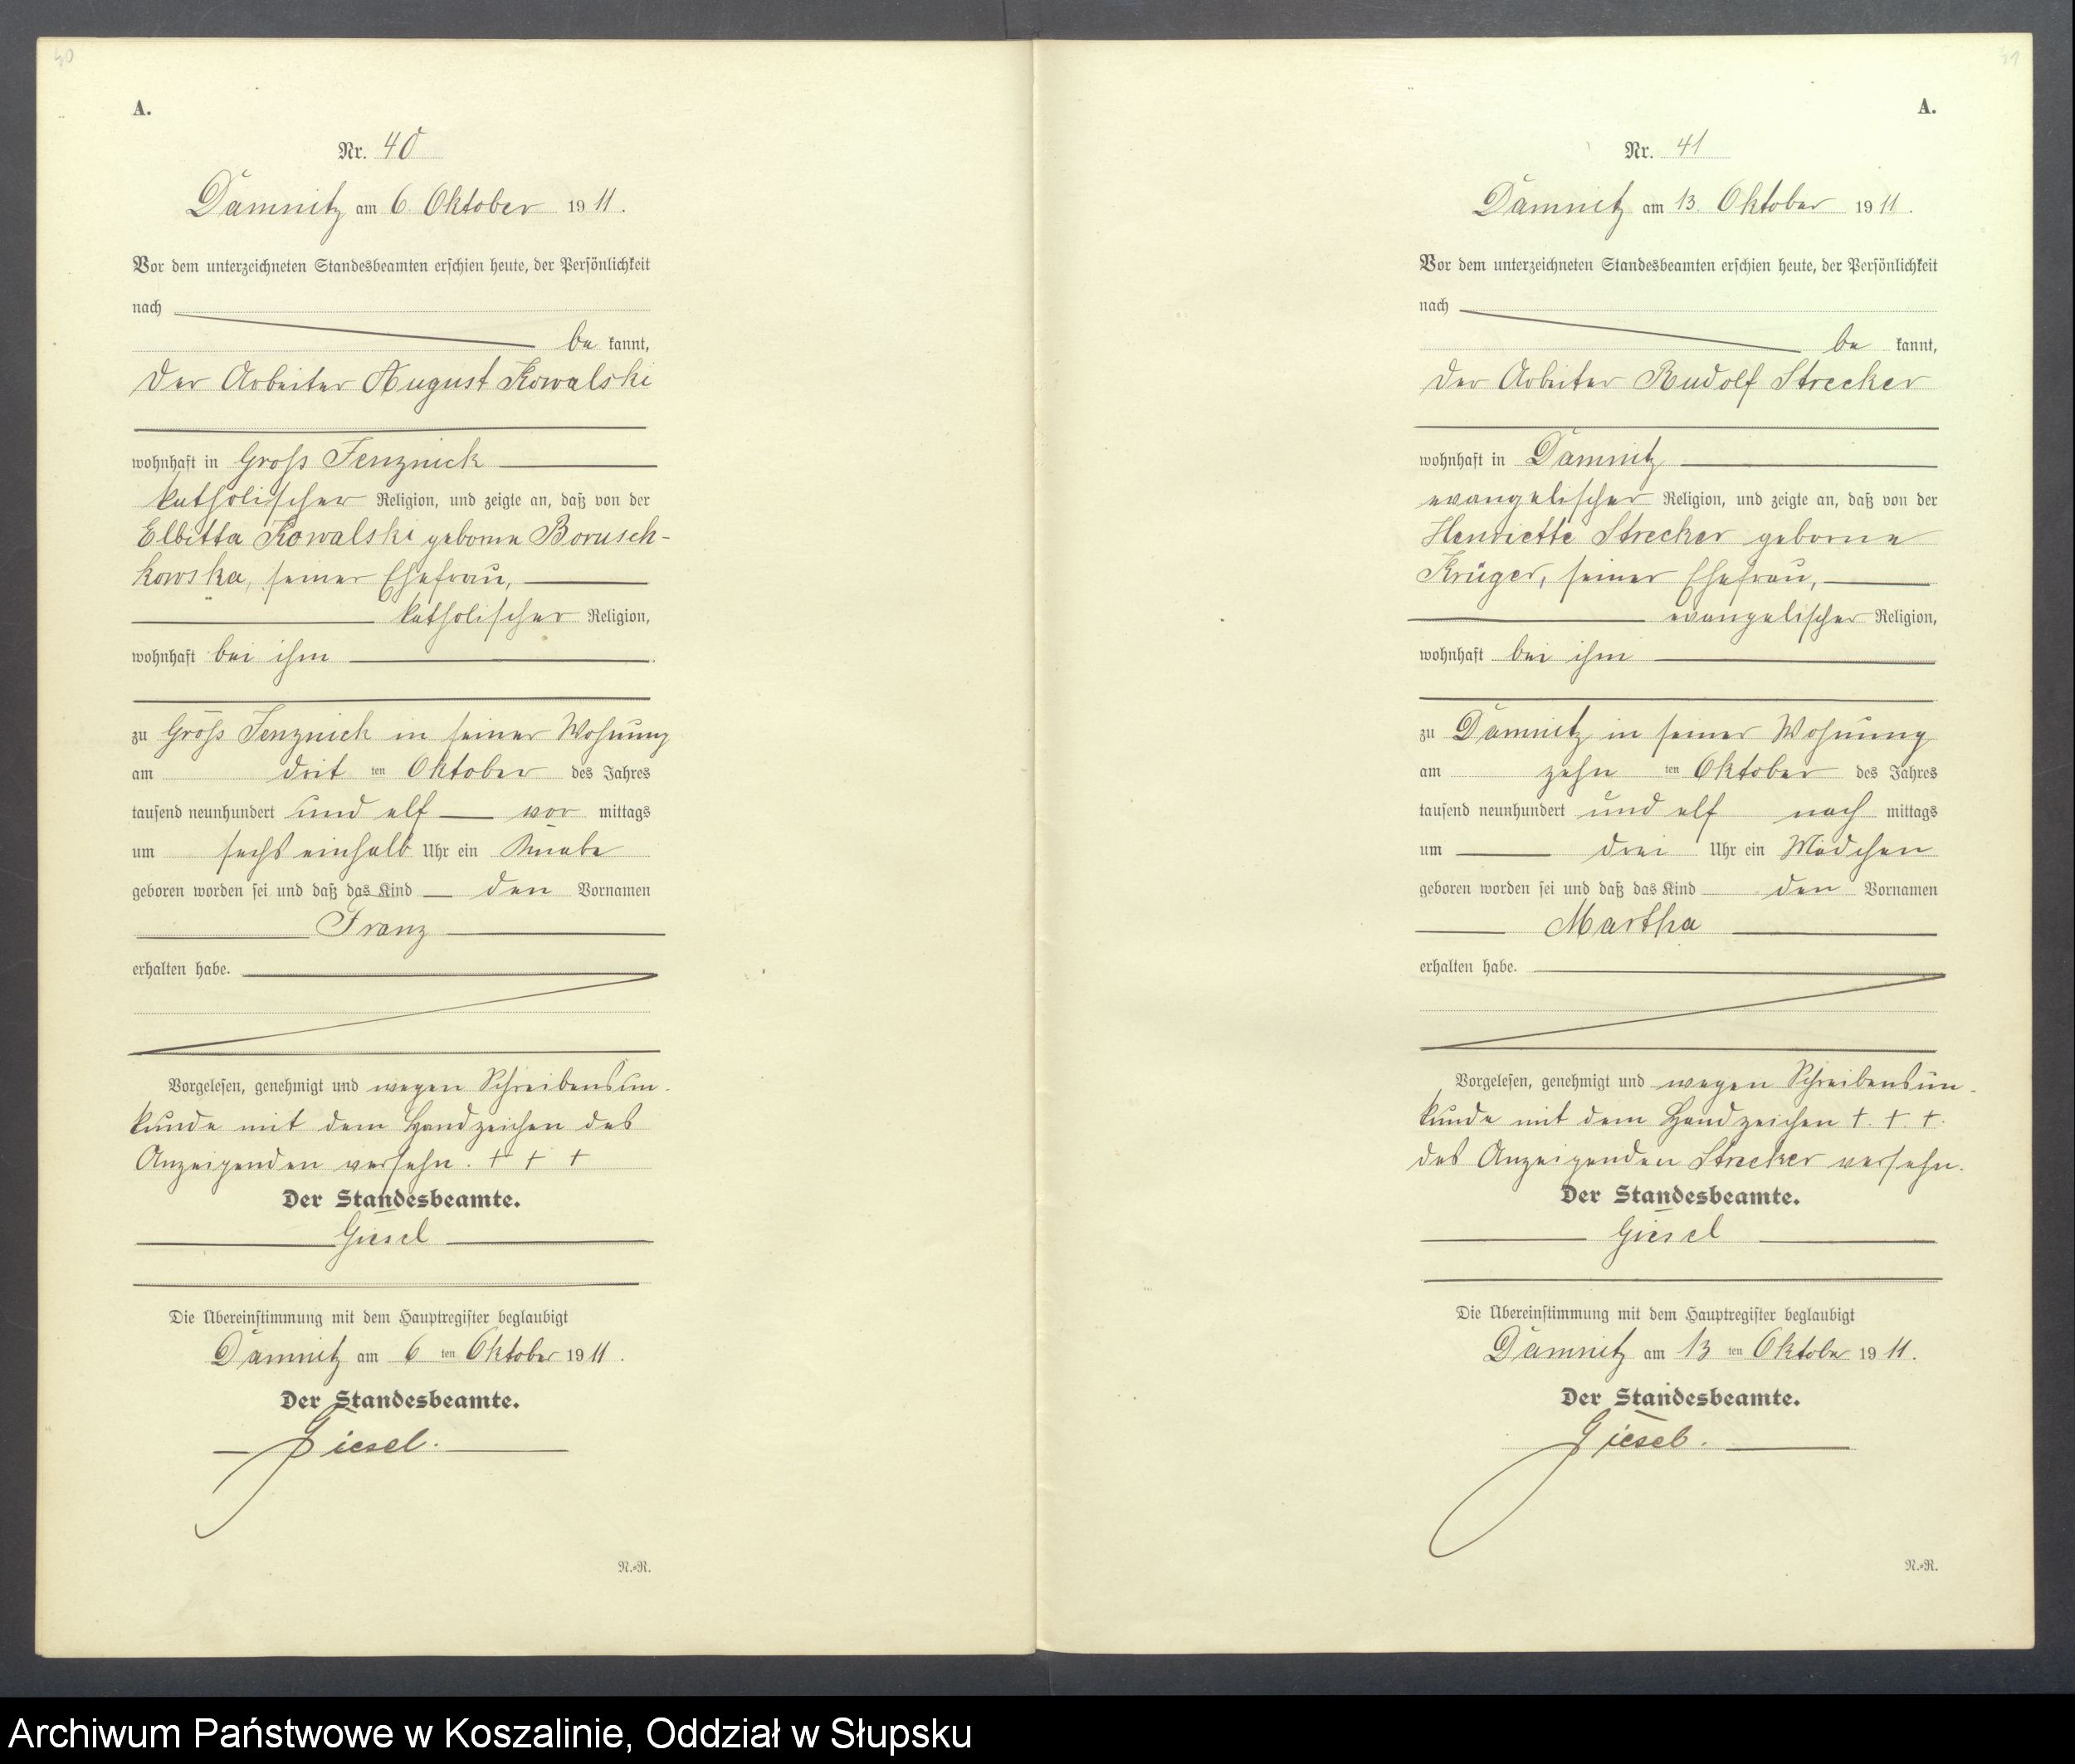 40
A.
Nr. 40
Damnitz am 6. Oktober 1911.
Vor dem unterzeichneten Standesbeamten erschien heute, der Persönlichkeit
nach
be kannt,
der Arbeiter August Kowalski
wohnhaft in Groß Jenznick
katholischer Religion, und zeigte an, daß von der
Elbitta Kowalski geborne Borusch-
kowska, seiner Ehefrau,
katholischer Religion,
wohnhaft bei ihm
zu Groß Jenznick in seiner Wohnung
am drit ten Oktober des Jahres
tausend neunhundert und elf vor mittags
um sechs einhalb Uhr ein Knabe
geboren worden sei und daß das Kind den Vornamen
Franz
erhalten habe.
Vorgelesen, genehmigt und wegen Schreibensun-
kunde mit dem Handzeichen des
Anzeigenden versehn. + + +
Der Standesbeamte.
Giesel
Die Übereinstimmung mit dem Hauptregister beglaubigt
Damnitz am 6 ten Oktober 1911.
Der Standesbeamte.
Giesel.
N.=R.
41
A.
Nr. 41
Damnitz am 13. Oktober 1911.
Vor dem unterzeichneten Standesbeamten erschien heute, der Persönlichkeit
nach
be kannt,
der Arbeiter Rudolf Strecker
wohnhaft in Damnitz
evangelischer Religion, und zeigte an, daß von der
Henriette Strecker geborne
Krüger, seiner Ehefrau,
evangelischer Religion,
wohnhaft bei ihm
zu Damnitz in seiner Wohnung
am zehn ten Oktober des Jahres
tausend neunhundert und elf nach mittags
um drei Uhr ein Mädchen
geboren worden sei und daß das Kind den Vornamen
Martha
erhalten habe.
Vorgelesen, genehmigt und wegen Schreibensun-
kunde mit dem Handzeichen +. +. +.
des Anzeigenden Strecker versehn.
Der Standesbeamte.
Giesel
Die Übereinstimmung mit dem Hauptregister beglaubigt
Damnitz am 13 ten Oktober 1911.
Der Standesbeamte.
Giesel.
N.=R.
Archiwum Państwowe w Koszalinie, Oddział w Słupsku